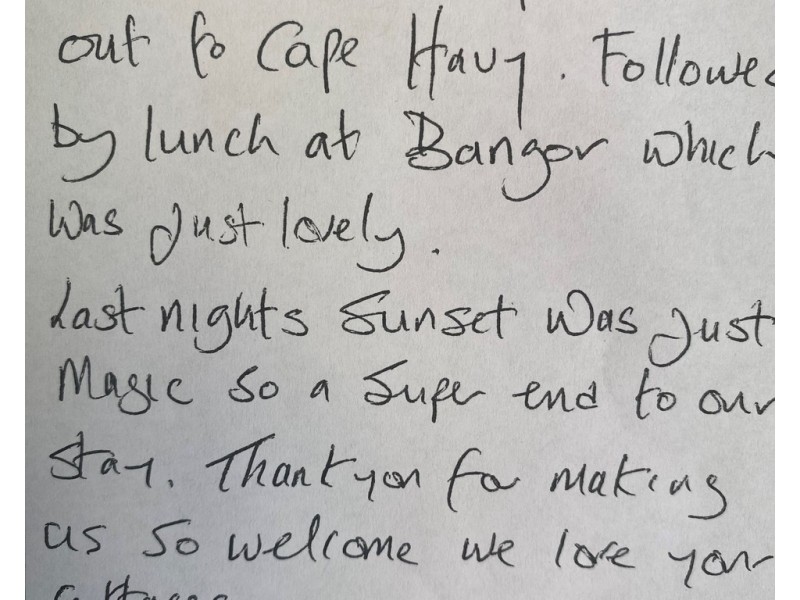 out to Cape Hauy. Followed
by lunch at Bangor which
was just lovely.
Last nights Sunset was just
Magic so a super end to our
stay. Thankyou for making
us so welcome we love your